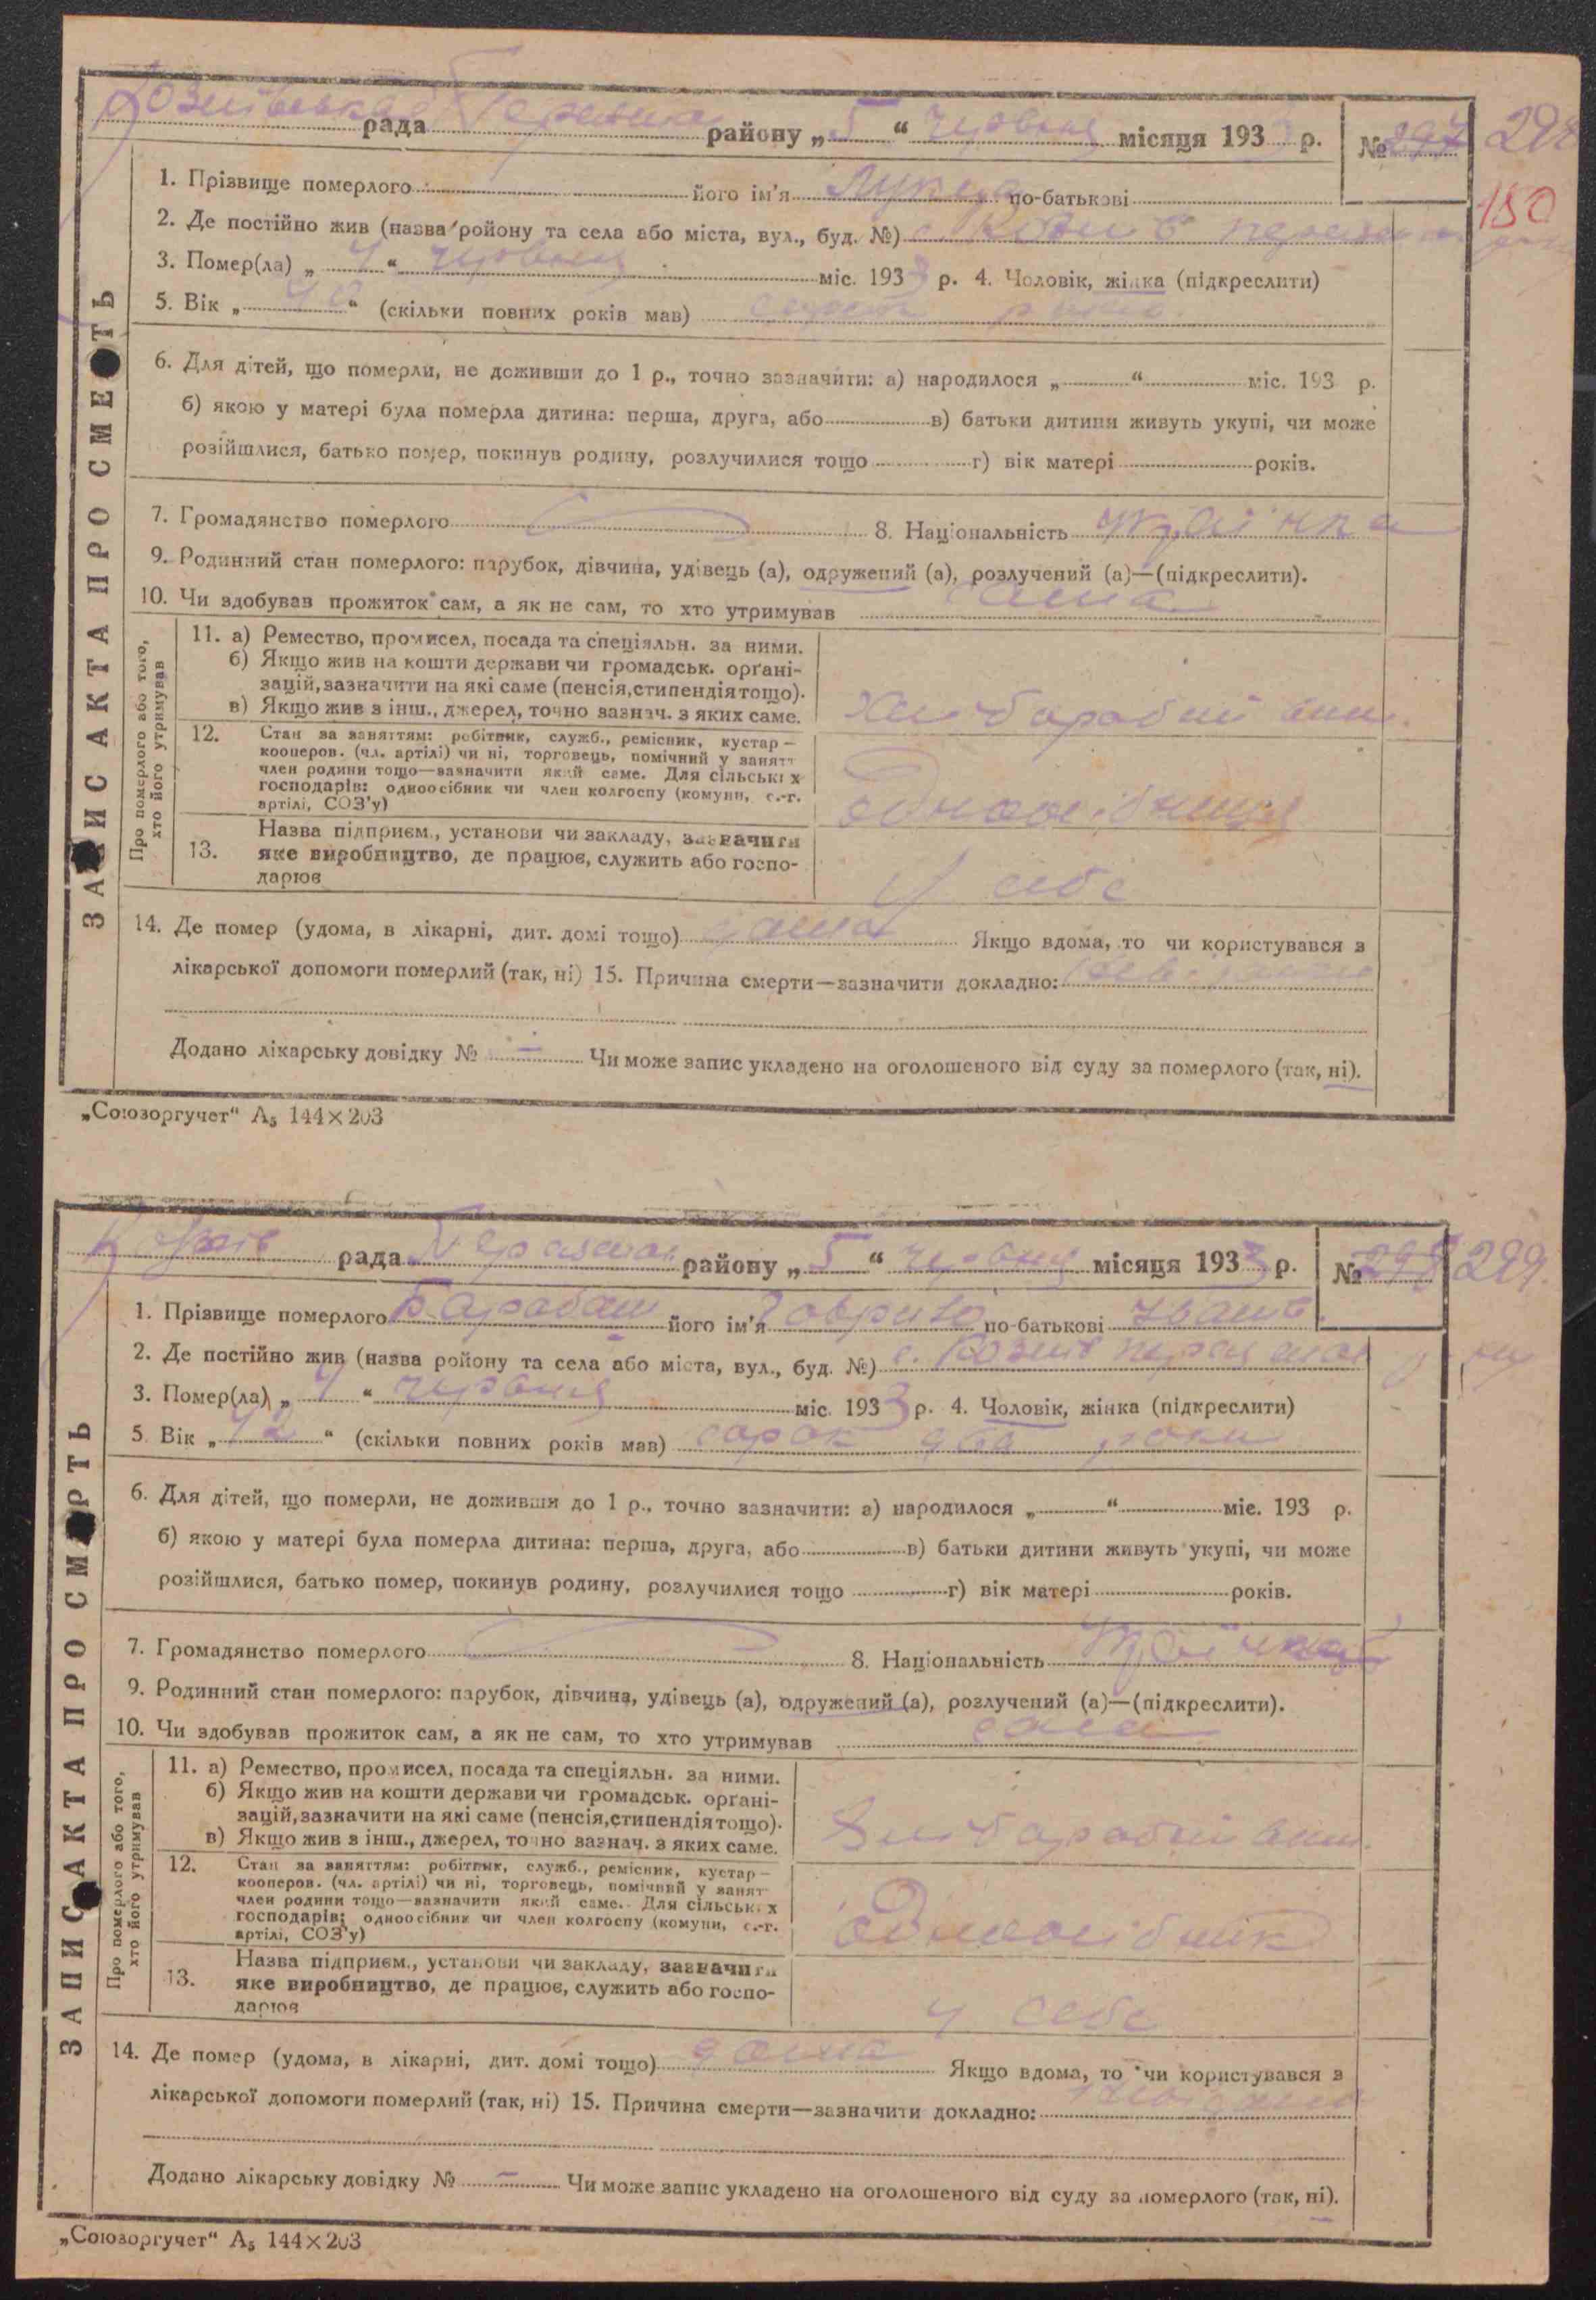 рада района району „5“ червня місяця 1933 р. № 297 298
150
1. Прізвище померлого його ім'я Лукера по-батькові
2. Де постійно жив (назва ройону та села або міста, вул., буд. №) с.
3. Помер(ла) „4“ червня міс. 1933 р. 4. Чоловік, жінка (підкреслити)
5. Вік „40“ (скільки повних років мав) сорок
6. Для дітей, що померли, не доживши до 1 р., точно зазначити: а) народилося „ “ міс. 193 р.
б) якою у матері була померла дитина: перша, друга, або в) батьки дитини живуть укупі, чи може
розійшлися, батько помер, покинув родину, розлучилися тощо г) вік матері років.
7. Громадянство померлого 8. Національність українка
9. Родинний стан померлого: парубок, дівчина, удівець (а), одружений (а), розлучений (а)—(підкреслити).
10. Чи здобував прожиток сам, а як не сам, то хто утримував сама
ЗАПИС АКТА ПРО СМЕРТЬ
Про померлого або того,
хто його утримував
11. а) Ремество, промисел, посада та спеціяльн. за ними.
б) Якщо жив на кошти держави чи громадськ. орґані-
зацій, зазначити на які саме (пенсія, стипендія тощо).
в) Якщо жив з інш., джерел, точно зазнач. з яких саме.
12. Стан за заняттям: робітник, служб., ремісник, кустар—
кооперов. (чл. артілі) чи ні, торговець, помічний у занятт
член родини тощо—зазначити який саме. Для сільських
господарів: одноосібник чи член колгоспу (комуни, с.-г.
артілі, СОЗ'у)
одноосібниця
13. Назва підприєм., установи чи закладу, зазначити
яке виробництво, де працює, служить або госпо-
дарює
У себе
14. Де помер (удома, в лікарні, дит. домі тощо) дома Якщо вдома, то чи користувався з
лікарської допомоги померлий (так, ні) 15. Причина смерти—зазначити докладно:
Додано лікарську довідку № — Чи може запис укладено на оголошеного від суду за померлого (так, ні).
„Союзоргучет“ А5 144×203
рада району „5“ червня місяця 1933 р. № 298 299.
1. Прізвище померлого Барабаш його ім'я по-батькові
2. Де постійно жив (назва ройону та села або міста, вул., буд. №) с.
3. Помер(ла) „4“ червня міс. 1933 р. 4. Чоловік, жінка (підкреслити)
5. Вік „42“ (скільки повних років мав) сорок два роки
6. Для дітей, що померли, не доживши до 1 р., точно зазначити: а) народилося „ “ міс. 193 р.
б) якою у матері була померла дитина: перша, друга, або в) батьки дитини живуть укупі, чи може
розійшлися, батько помер, покинув родину, розлучилися тощо г) вік матері років.
7. Громадянство померлого 8. Національність
9. Родинний стан померлого: парубок, дівчина, удівець (а), одружений (а), розлучений (а)—(підкреслити).
10. Чи здобував прожиток сам, а як не сам, то хто утримував
ЗАПИС АКТА ПРО СМЕРТЬ
Про померлого або того,
хто його утримував
11. а) Ремество, промисел, посада та спеціяльн. за ними.
б) Якщо жив на кошти держави чи громадськ. орґані-
зацій, зазначити на які саме (пенсія, стипендія тощо).
в) Якщо жив з інш., джерел, точно зазнач. з яких саме.
12. Стан за заняттям: робітник, служб., ремісник, кустар—
кооперов. (чл. артілі) чи ні, торговець, помічний у занят
член родини тощо—зазначити який саме. Для сільських
господарів: одноосібник чи член колгоспу (комуни, с.-г.
артілі, СОЗ'у)
одноосібник
13. Назва підприєм., установи чи закладу, зазначити
яке виробництво, де працює, служить або госпо-
дарює
у себе
14. Де помер (удома, в лікарні, дит. домі тощо) дома Якщо вдома, то чи користувався з
лікарської допомоги померлий (так, ні) 15. Причина смерти—зазначити докладно:
Додано лікарську довідку № — Чи може запис укладено на оголошеного від суду за померлого (так, ні).
„Союзоргучет“ А5 144×203